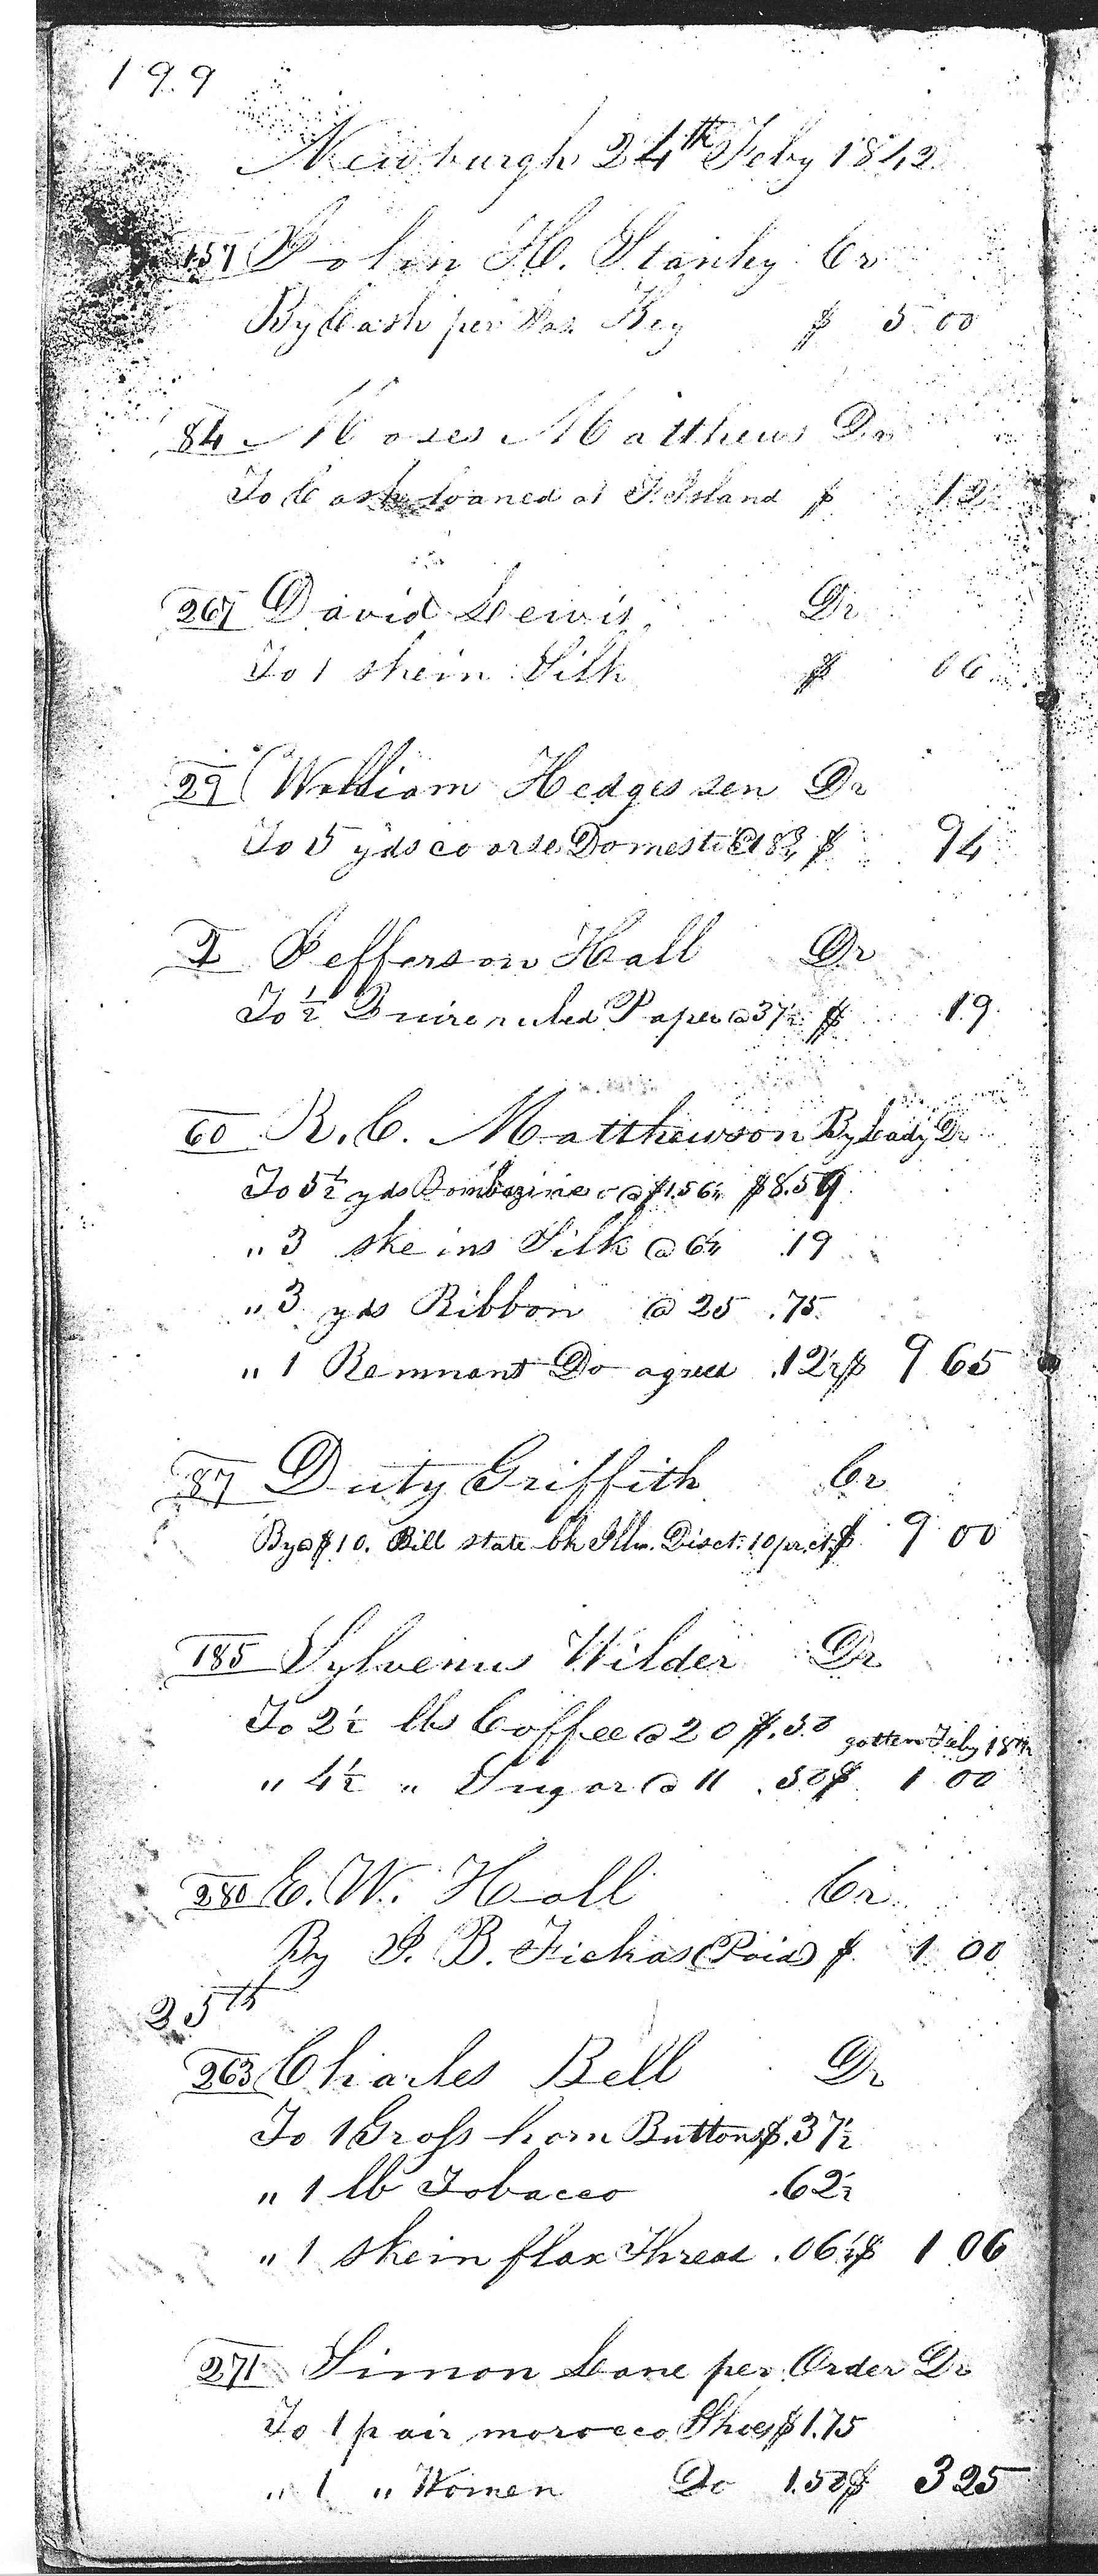 199
Newburgh 24th Feby 1842
157 John H. Stanley Cr
By Cash per Key $ 5 00
84 Moses Matthews Dr
To Cash loaned at F. Island $ 12
267 David Lewis Dr
To 1 skein Silk $ 06
29 William Hedges sen Dr
To 5 yds coarse Domestic @ 18¾ $ 94
2 Jefferson Hall Dr
To ½ Quire ruled Paper @ 37½ $ 19
60 R. C. Matthewson By Lady Dr
To 5½ yds Bombazine @ $1.56¼ $8.59
" 3 skeins Silk @ 6¼ .19
" 3 yds Ribbon @ 25 .75
" 1 Remnant Do agreed .12½ $ 9 65
87 Duty Griffith Cr
By a $10. Bill state bk Ills. Disct. 10 pr. ct. $ 9 00
185 Sylvenus Wilder Dr
To 2½ lbs Coffee @ 20 $.50 gotten Feby 18th
" 4½ " Sugar @ 11 .50 $ 1 00
280 E. W. Hall Cr
By J. B. Fickas (Paid) $ 1 00
25th
263 Charles Bell Dr
To 1 Gross horn Buttons $.37½
" 1 lb Tobacco .62½
" 1 skein flax Thread .06¼ $ 1 06
271 Simon Lane per Order Dr
To 1 pair morocco Shoes $1.75
" 1 " Women Do 1.50 $ 3 25